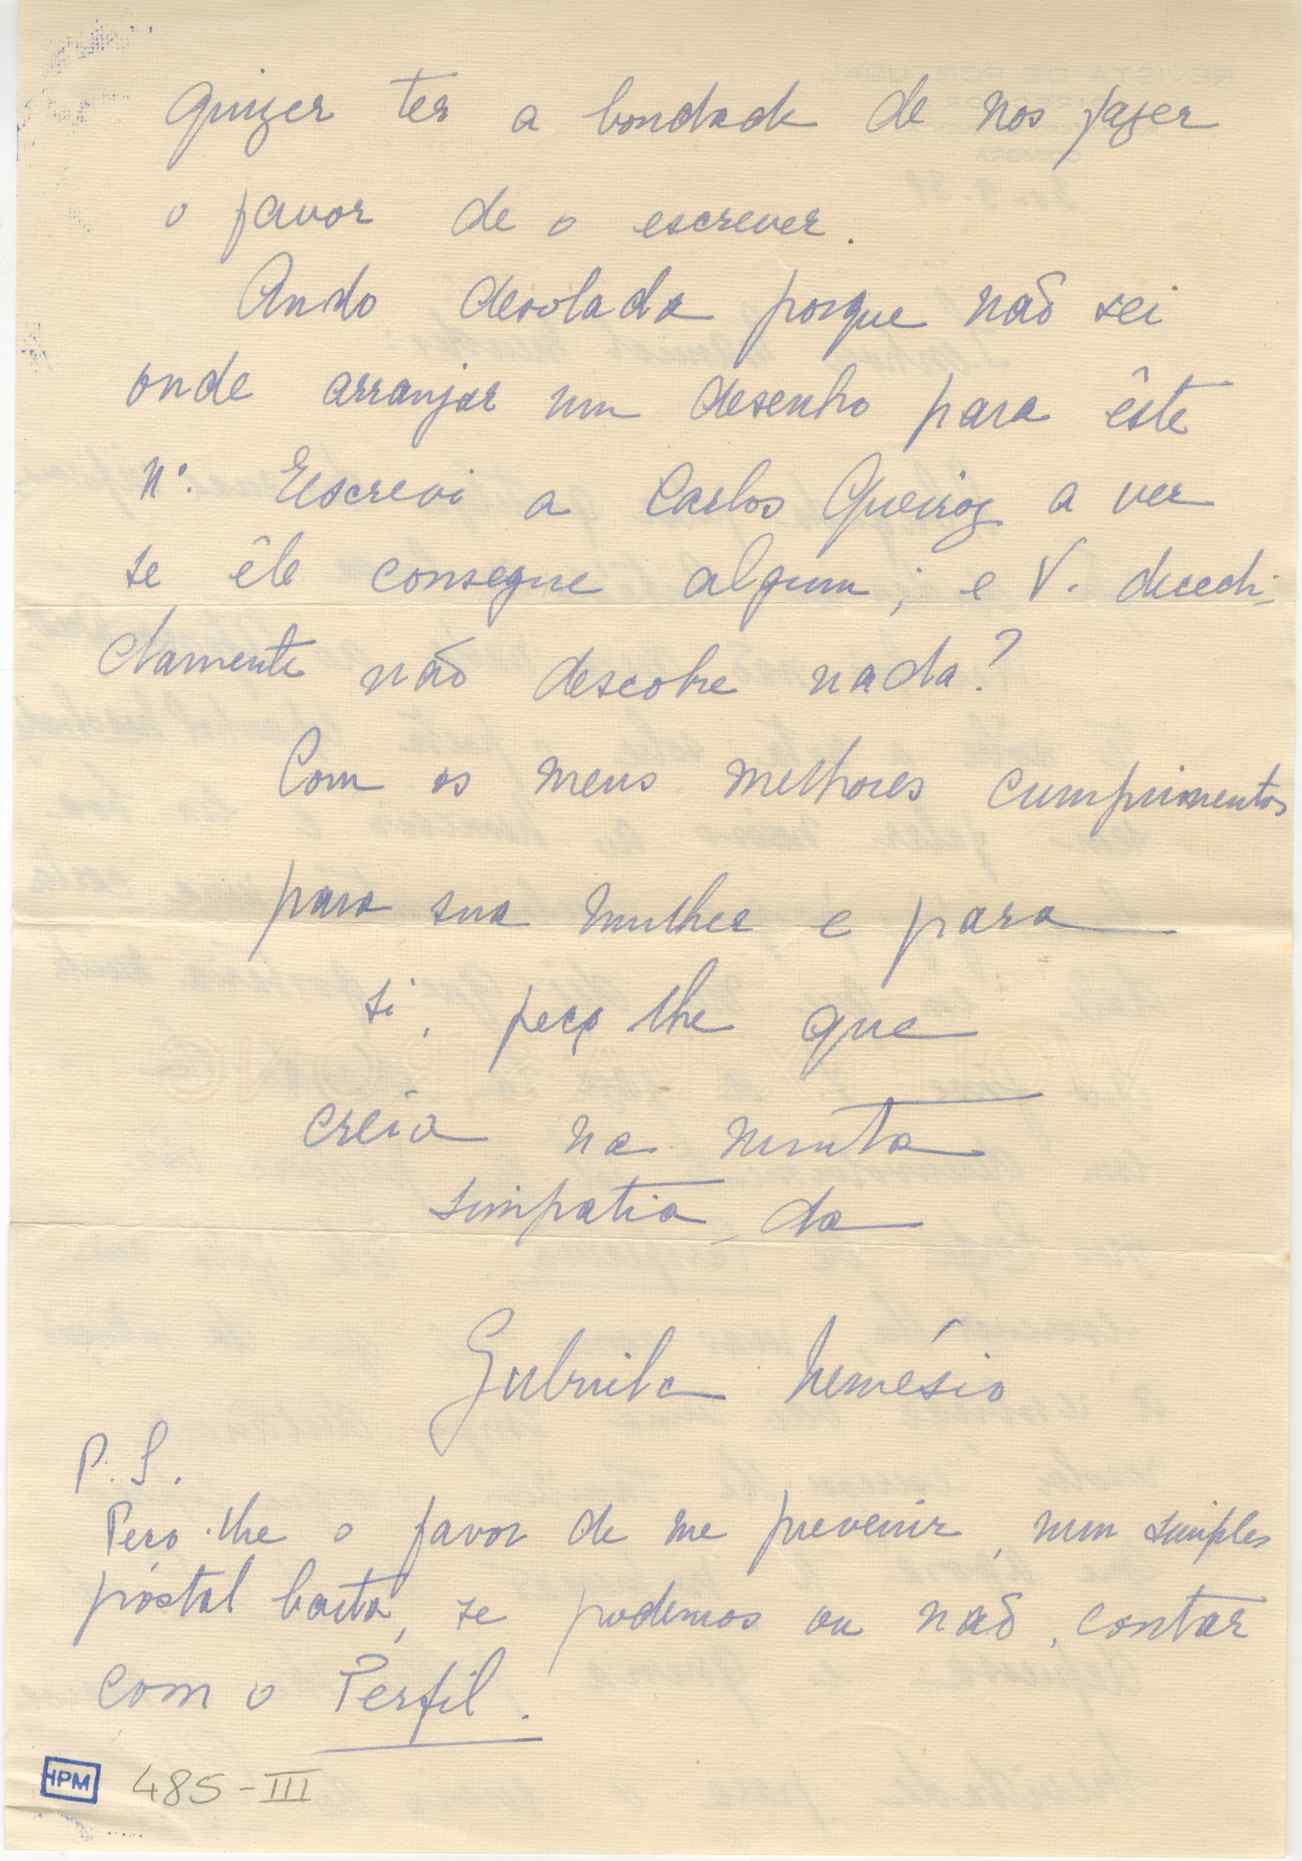 quizer ter a bondade de nos fazer
o favor de o escrever.
Ando desolada porque não sei
onde arranjar um desenho para êste
nº. Escrevi a Carlos Queiroz a ver
se êle consegue algum; e V. decedi-
damente não descobre nada?
Com os meus melhores cumprimentos
para sua mulher e para
si, peço lhe que
creia na muita
simpatia da
Gabriela Nemésio
P.S.
Peço-lhe o favor de me prevenir, num simples
póstal basta, se podemos ou não, contar
com o Perfil.
HPM 485-III